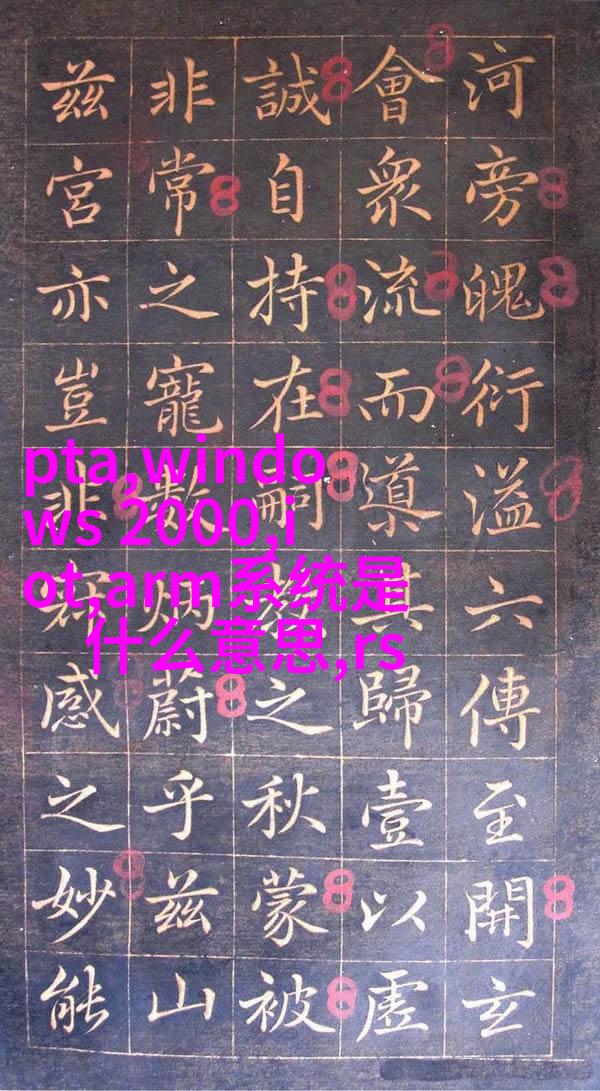 河旁魄衍溢六傳至開玄
會衆流而導其歸壹以虛
誠自持在嗣教之秋蒙被
非常之寵數炳蔚乎兹山
兹宮亦豈非感之妙能
pta,windo
ws 2000,i
ot,arm系统是
什么意思,rs